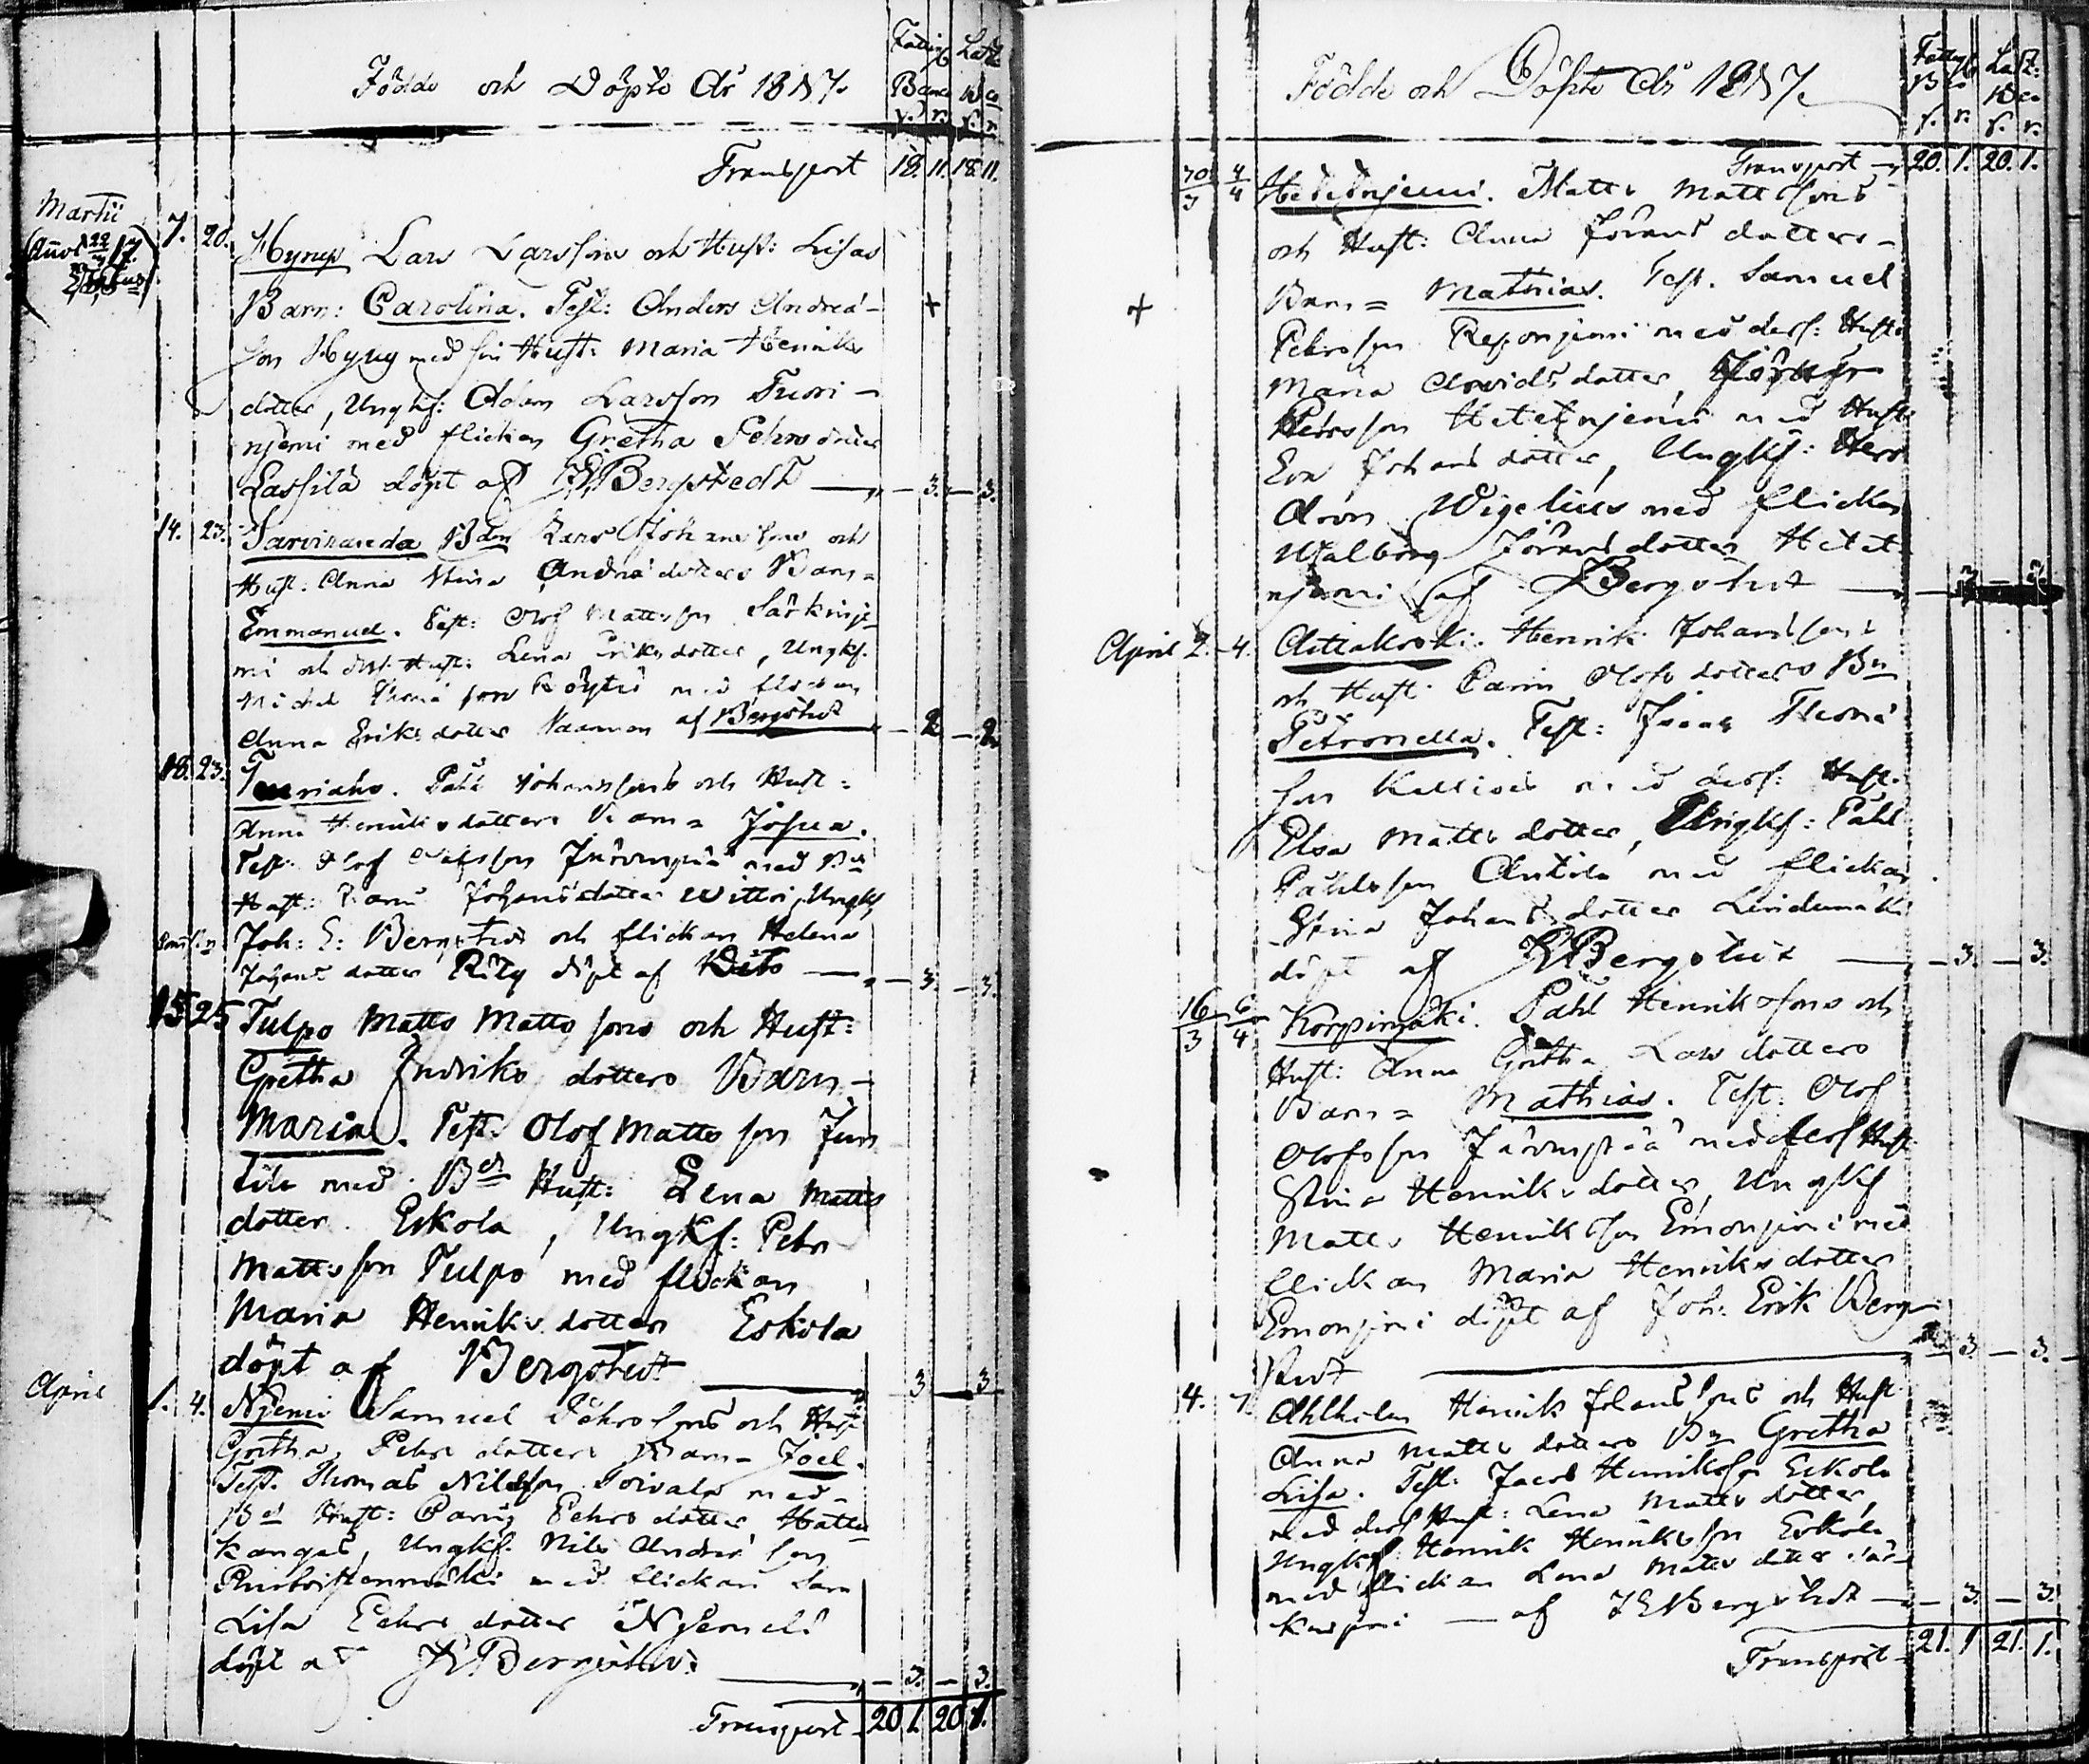 Födde och Döpte År 1817.
Fattig Last.
Barn
Transport 18. 11. 18. 11.
Martii
7. 20. Hyrup Lars Larssons och Hust: Lisas
Barn: Carolina. Test: Anders Andreæ-
son Hyrup med sin Hust: Maria Henriks
dotter, Ungk: Adam Larsson Tuori-
njemi med flickan Gretha Pehrs dotter
Lassila döpt af JEBergstedt — 3. — 3.
14. 23. Sarviranda Bdn Lars Johanssons och
Hust: Anna Stina Andreædotters Barn =
Emmanuel. Test: Olof Mattsson Särkinje-
mi och dess Hust: Lena Eriksdotter, Ungk.
Michel Thomæ son Köytiö med flickan
Anna Eriks dotter Naaman af Bergstedt — 2. — 2.
18. 23. Tuoriaho. Påhl Johanssons och Hust:
Anna Henriksdotters Barn = Josua.
Test: Olof Olofsson Järvenpää med Bdn
Hust: Johansdotter Witto, Ungk
Joh: E: Bergstedt och flickan Helena
Johans dotter döpt af Dito — 3. — 3.
15 25 Tulpo Matts Matts sons och Hust:
Gretha Indriks dotters Barn-
Maria. Test: Olof Matts son Jun
tila med Bdn Hust: Lena Matts
dotter Eskola, Ungk: Pehr
Mattsson Tulpo med flickan
Maria Henriks dotter Eskola
döpt af Bergstedt — 3 — 3
April 1. 4. Njemi Samuel Pehrssons och Hust
Gretha Pehrs dotters Barn- Joel.
Test. Thomas Nilsson Toivala med
Bdn Hust: Carin Pehrs dotter Hattu
kangas, Ungk. Nils Andreæ son
med flickan
Lisa Pehrs dotter Njemeli
döpt af JEBergstedt — 3. — 3.
Transport 20 1. 20 1.
Födde och Döpte År 1817.
Fattig Last:
Transport 20. 1. 20. 1.
4/4 Hetetnjemi. Matts Mattssons
och Hust: Anna Jörans dotters-
Barn = Mathias. Test. Samuel
+ Pehrsson Reponjemi med dess: Hust:
Maria Arvids dotter,
Pehrsson Hetetnjemi med Hust:
Eva Johans dotter, Ungk: Herr
Aron Wigelius med flickan
Walborg Jörans dotter Hetet
njemi af Bergstedt
April 2. 4. Aittakoski. Henrik Johanssons
och Hust: Carin Olofs dotters Bn
Petronella. Test: Isaac Thomæ
son med dess: Hust:
Elsa Matts dotter, Ungk: Påhl
Påhlsson Antila med flickan
Stina Johans dotter Lindemäki
döpt af JEBergstedt — 3. — 3.
16/3 6/4 Korpimäki. Påhl Henrikssons och
Hust: Anna Gretha Lars dotters
Barn = Mathias. Test: Olof
Olofsson Järvenpää med dess Hust
Stina Henriks dotter, Ungk
Matts Henriksson Emonjemi med
flickan Maria Henriks dotter
Emonjemi döpt af Joh: Erik Berg-
stedt — 3. — 3.
4. 7. Ahlholm Henrik Johanssons och Hust
Anna Matts dotters Bn Gretha
Lisa. Test: Jacob Henriksson Eskola
med dess Hust: Lena Matts dotter,
Ungk: Henrik Henriksson Eskola
med flickan Lena Matts dotter Sär-
kinjemi — af JEBergstedt — 3. — 3.
Transport 21. 1 21. 1.